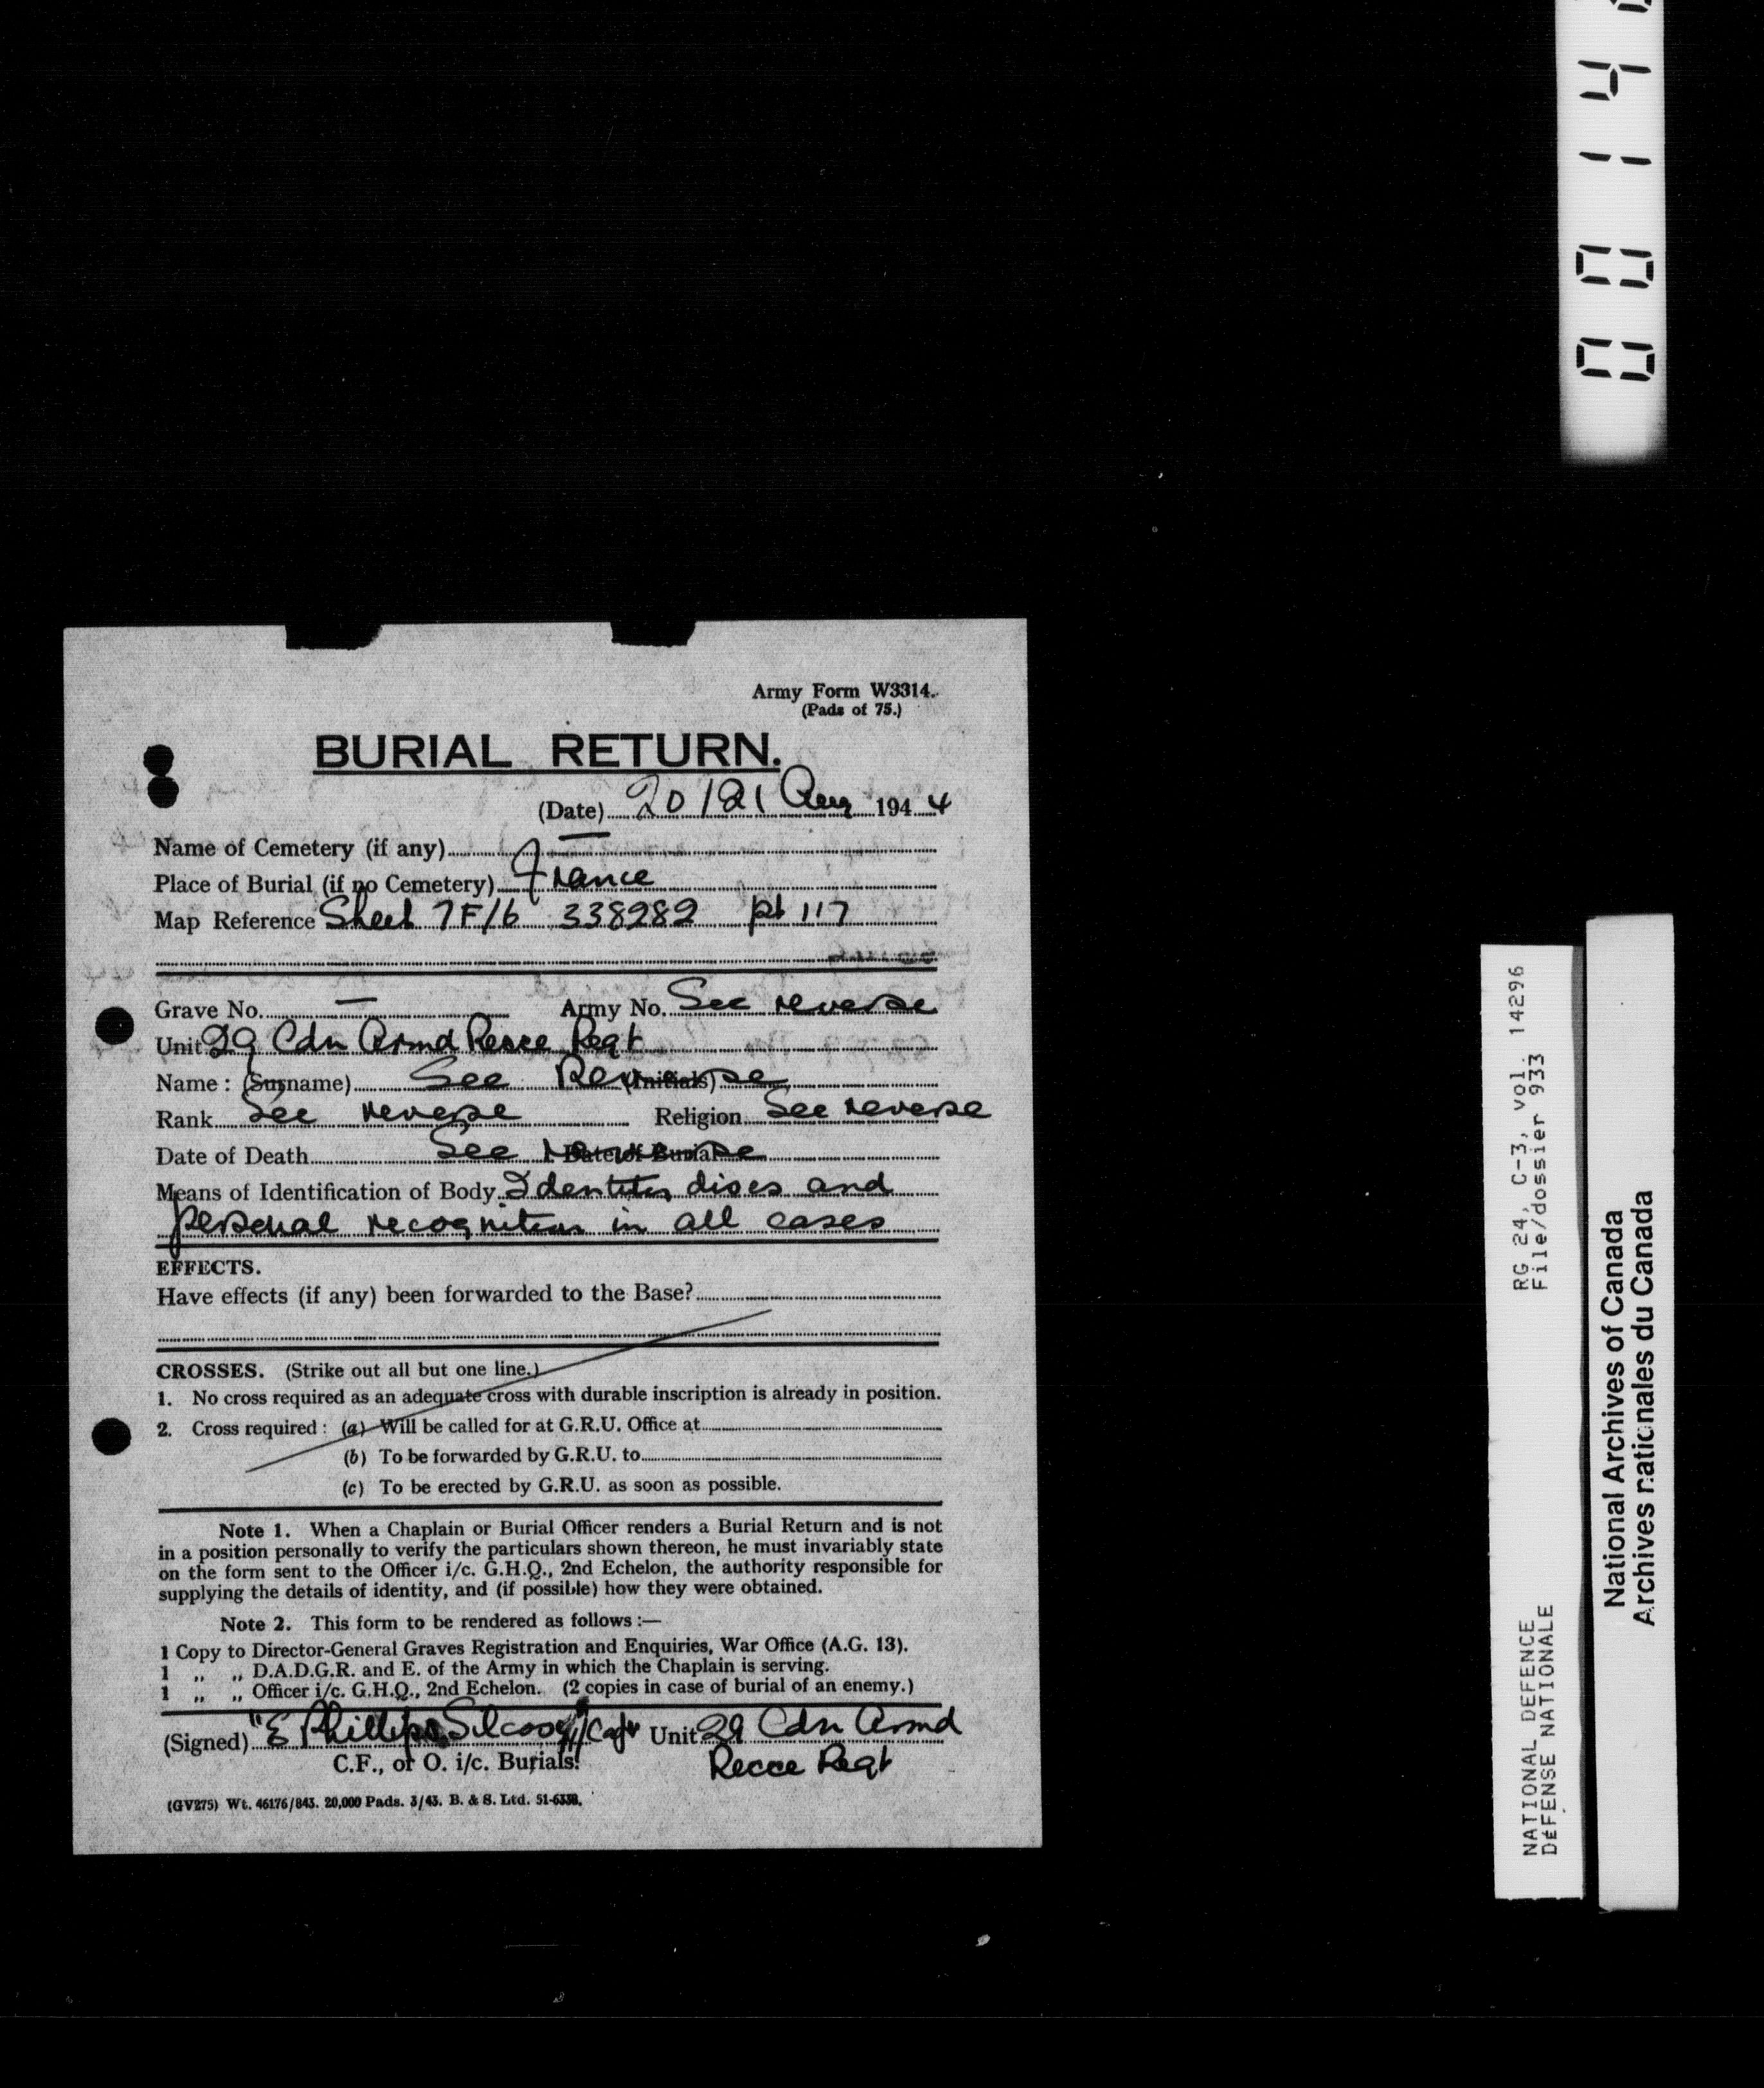 Army Form W3314.
(Pads of 75.)
BURIAL RETURN.
(Date) 20/21 Aug 194 4
Name of Cemetery (if any) —
Place of Burial (if no Cemetery) France
Map Reference Sheet 7F/6 338282 pt 117
Grave No. — Army No. See reverse
Unit 29 Cdn Armd Recce Regt
Name : (Surname) See Reverse (Initials)
Rank See reverse Religion See reverse
Date of Death See reverse Date of Burial
Means of Identification of Body Identity discs and
personal recognition in all cases
EFFECTS.
Have effects (if any) been forwarded to the Base?
CROSSES. (Strike out all but one line.)
1. No cross required as an adequate cross with durable inscription is already in position.
2. Cross required : (a) Will be called for at G.R.U. Office at
(b) To be forwarded by G.R.U. to
(c) To be erected by G.R.U. as soon as possible.
Note 1. When a Chaplain or Burial Officer renders a Burial Return and is not
in a position personally to verify the particulars shown thereon, he must invariably state
on the form sent to the Officer i/c. G.H.Q., 2nd Echelon, the authority responsible for
supplying the details of identity, and (if possible) how they were obtained.
Note 2. This form to be rendered as follows :—
1 Copy to Director-General Graves Registration and Enquiries, War Office (A.G. 13).
1 „ „ D.A.D.G.R. and E. of the Army in which the Chaplain is serving.
1 „ „ Officer i/c. G.H.Q., 2nd Echelon. (2 copies in case of burial of an enemy.)
(Signed) "E Phillips Silcox" Capt Unit 29 Cdn Armd
C.F., or O. i/c. Burials. Recce Regt
(GV275) Wt. 46176/843. 20,000 Pads. 3/43. B. & S. Ltd. 51-6338.
0014
RG 24, C-3, vol. 14296
File/dossier 933
NATIONAL DEFENCE
DÉFENSE NATIONALE
National Archives of Canada
Archives nationales du Canada